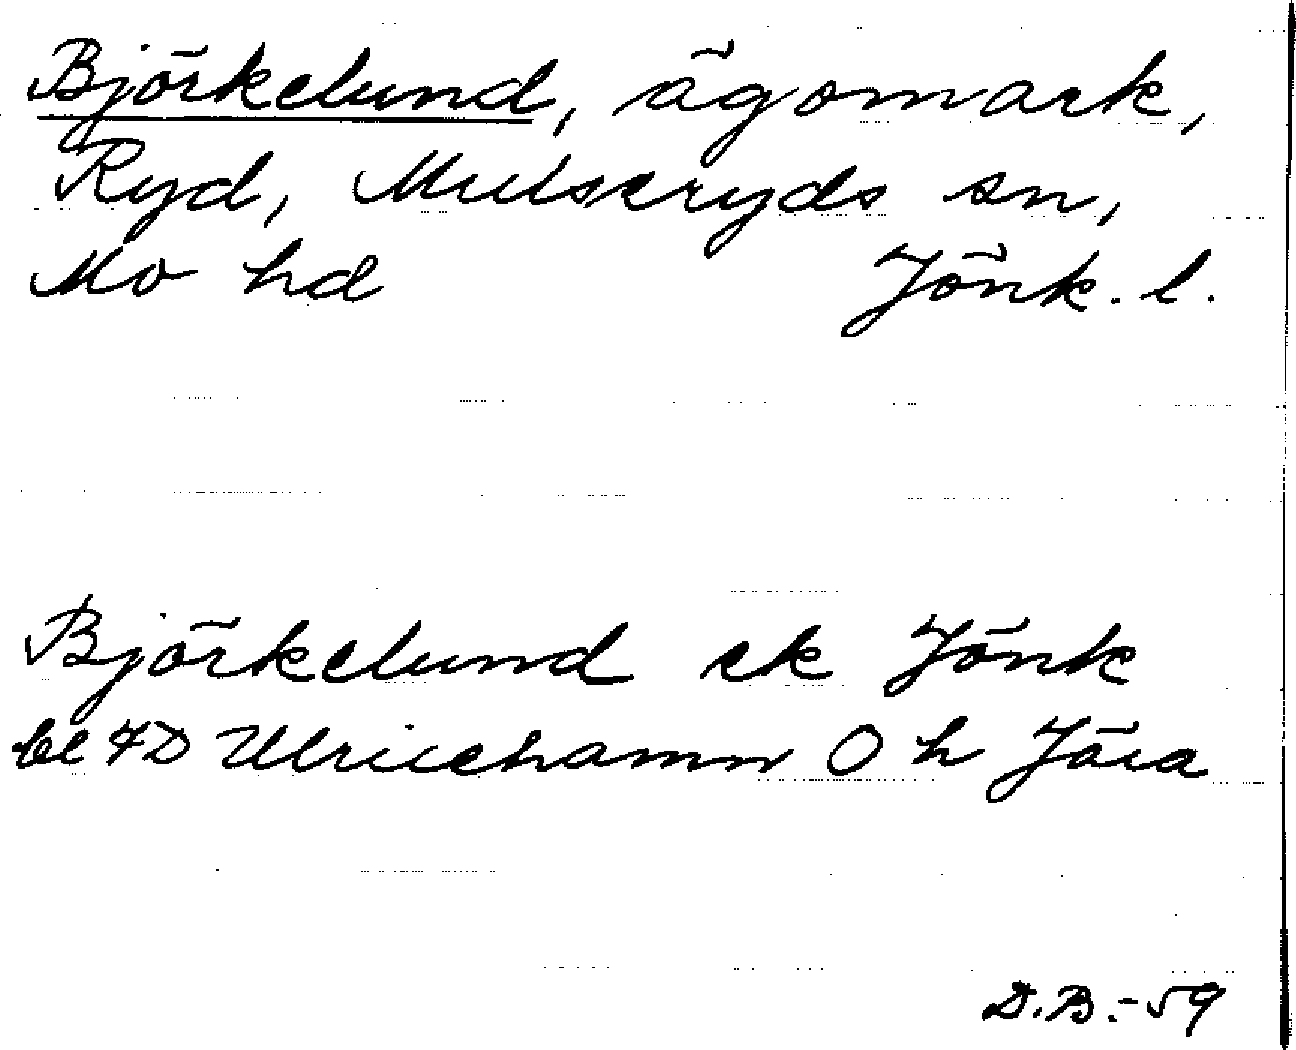 Björkelund, ägomark,
Ryd, Mulseryds sn,
Mo hd Jönk. l.
Björkelund ek Jönk
bl 7D Ulricehamn O h Jära
D.B.-59